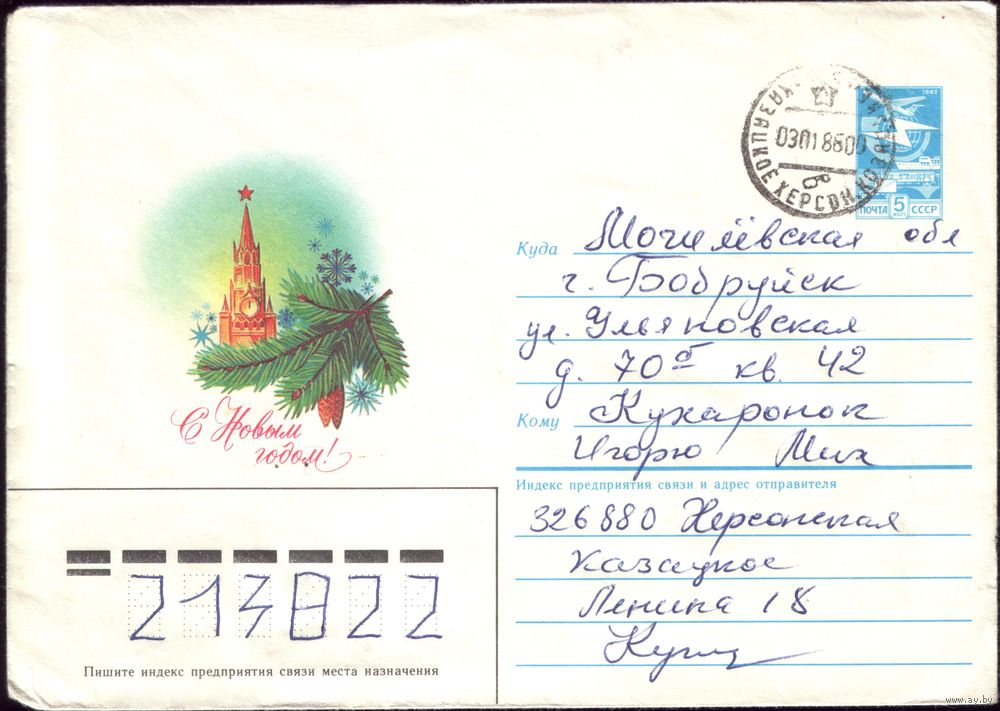 С Новым
годом!
КАЗАЦКОЕ ХЕРСОН.
03018600
в
1982
ПОЧТА 5 КОП СССР
Куда Могилёвская обл
г. Бобруйск
ул. Ульяновская
д. 70б кв. 42
Кому Кухаронок
Игорю Мих
Индекс предприятия связи и адрес отправителя
326880 Херсонская
Казацкое
Ленина 18
213822
Пишите индекс предприятия связи места назначения
www.ay.by